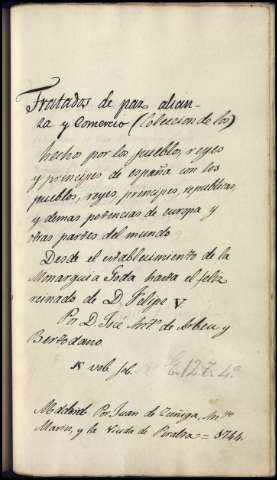 Tratados de paz alian-
za y Comercio (Coleccion de los)
hechos por los pueblos, reyes
y principes de españa con los
pueblos, reyes, principes, republicas,
y demas potencias de europa y
otras partes del mundo
Desde el establecimiento de la
Monarquia Goda hasta el feliz
reinado de D. Felipe V
Por D. José Antº. de Abreu y
Bertodano.
vol. fol. E. 127. 4º
Madrid Por Juan de Zuñiga, Antº
Marin, y la Viuda de Peralta = 1744.